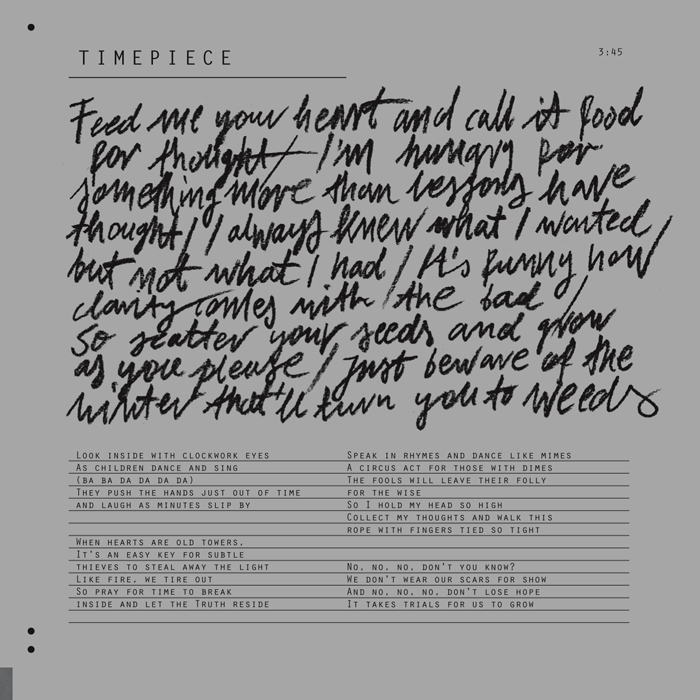 TIMEPIECE
3:45
Feed me your heart and call it food
for thought / I'm hungry for
something more than lessons have
thought / I always knew what I wanted
but not what I had / It's funny how
clarity comes with the bad /
So scatter your seeds and grow
as you please / just beware of the
winter that'll turn you to weeds
LOOK INSIDE WITH CLOCKWORK EYES
AS CHILDREN DANCE AND SING
(BA BA DA DA DA DA)
THEY PUSH THE HANDS JUST OUT OF TIME
AND LAUGH AS MINUTES SLIP BY
WHEN HEARTS ARE OLD TOWERS,
IT'S AN EASY KEY FOR SUBTLE
THIEVES TO STEAL AWAY THE LIGHT
LIKE FIRE, WE TIRE OUT
SO PRAY FOR TIME TO BREAK
INSIDE AND LET THE TRUTH RESIDE
SPEAK IN RHYMES AND DANCE LIKE MIMES
A CIRCUS ACT FOR THOSE WITH DIMES
THE FOOLS WILL LEAVE THEIR FOLLY
FOR THE WISE
SO I HOLD MY HEAD SO HIGH
COLLECT MY THOUGHTS AND WALK THIS
ROPE WITH FINGERS TIED SO TIGHT
NO, NO, NO, DON'T YOU KNOW?
WE DON'T WEAR OUR SCARS FOR SHOW
AND NO, NO, NO, DON'T LOSE HOPE
IT TAKES TRIALS FOR US TO GROW